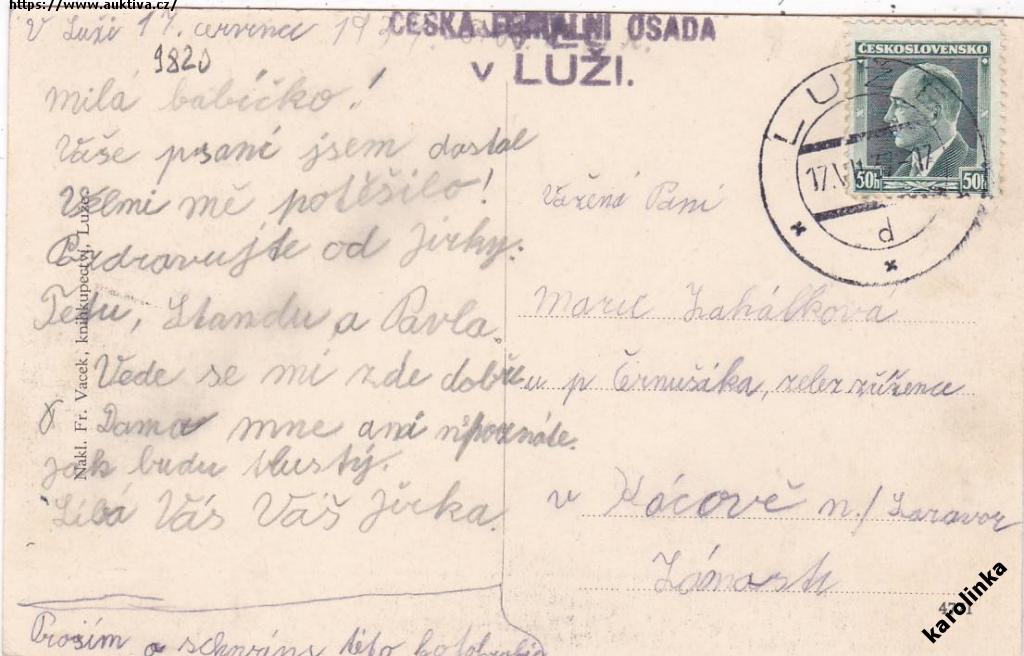 https://www.auktiva.cz/
V Luži 17. července
ČESKÁ FERIÁLNÍ OSADA
v LUŽI.
9820
Milá babičko!
Vaše psaní jsem dostal
Velmi mě potěšilo!
Pozdravujte od Jirky.
Tetu, Standu a Pavla.
Vede se mi zde dobře
Doma mne ani nepoznáte.
jak budu tlustý.
Líbá Vás Váš Jirka.
Prosím o schování této
Nakl. Fr. Vacek, knihkupectví, Luže.
ČESKOSLOVENSKO
50h 50h
LUŽE
17.VII
d
Vážená Paní
Marie Zahálková
u p Černušáka, želez zřízence
v Kácově n/ Sázavou
Zámostí
karolinka